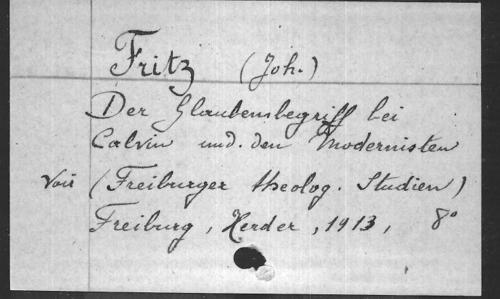 Fritz (Joh.)
Der Glaubensbegriff bei
Calvin und. den Modernisten
Voir (Freiburger theolog. Studien)
Freiburg, Herder, 1913, 8°